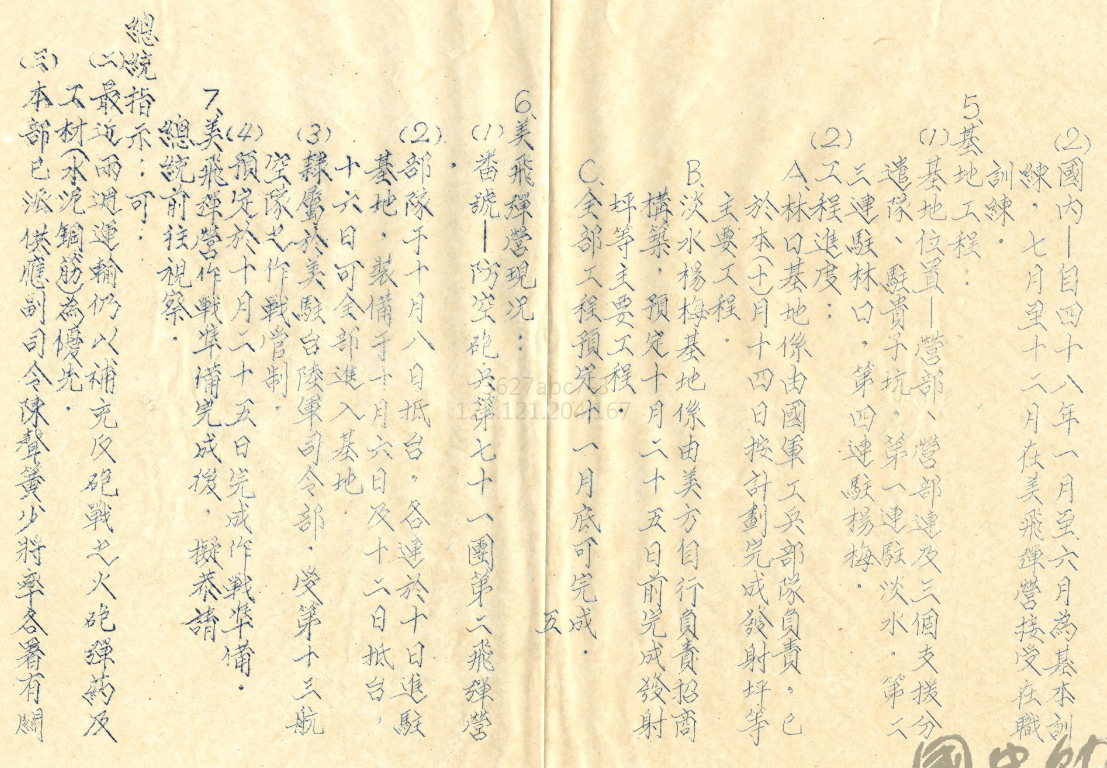 (2)國內—自四十八年一月至六月為基本訓
練，七月至十二月在美飛彈營接受在職
訓練．
5.基地工程：
(1)基地位置—營部、營部連及三個支援分
遣隊、駐貴子坑，第一連駐淡水．第二
三連駐林口，第四連駐楊梅．
(2)工程進度：
A.林口基地係由國軍工兵部隊負責，已
於本(十)月十四日按計劃完成發射坪等
主要工程．
B.淡水楊梅基地係由美方自行負責招商
構築，預定十月二十五日前完成發射
坪等主要工程．
C.全部工程預定十一月底可完成．
五
6.美飛彈營現況：
(1)番號—防空砲兵第七十一團第二飛彈營
．
(2)部隊于十月八日抵台，各連於十日進駐
基地，裝備于十月六日及十二日抵台，
十六日可全部進入基地
(3)隸屬於美駐台陸軍司令部，受第十三航
空隊之作戰管制．
(4)預定於十月二十五日完成作戰準備．
7.美飛彈營作戰準備完成後，擬恭請
總統前往視察．
總統指示：可．
(二)最近兩週運輸仍以補充反砲戰之火砲彈藥及
工材(水泥鋼筋為優先．
(三)本部已派供應副司令陳聲簧少將率各署有關
國史館